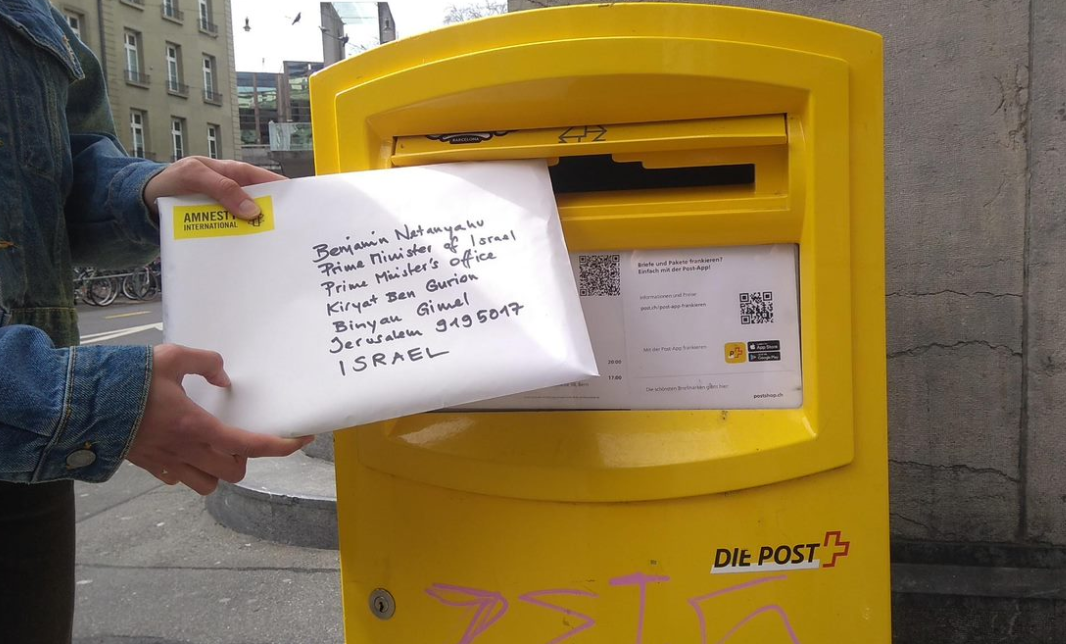 AMNESTY
INTERNATIONAL
Benjamin Netanyahu
Prime Minister of Israel
Prime Minister's Office
Kiryat Ben Gurion
Binyan Gimel
Jerusalem 9195017
ISRAEL
BARCELONA
Briefe und Pakete frankieren?
Einfach mit der Post-App!
Informationen und Preise:
post.ch/post-app-frankieren
Mit der Post-App frankieren:
App Store
Google Play
20:00
17:00
Die schönsten Briefmarken gibts hier:
postshop.ch
DIE POST